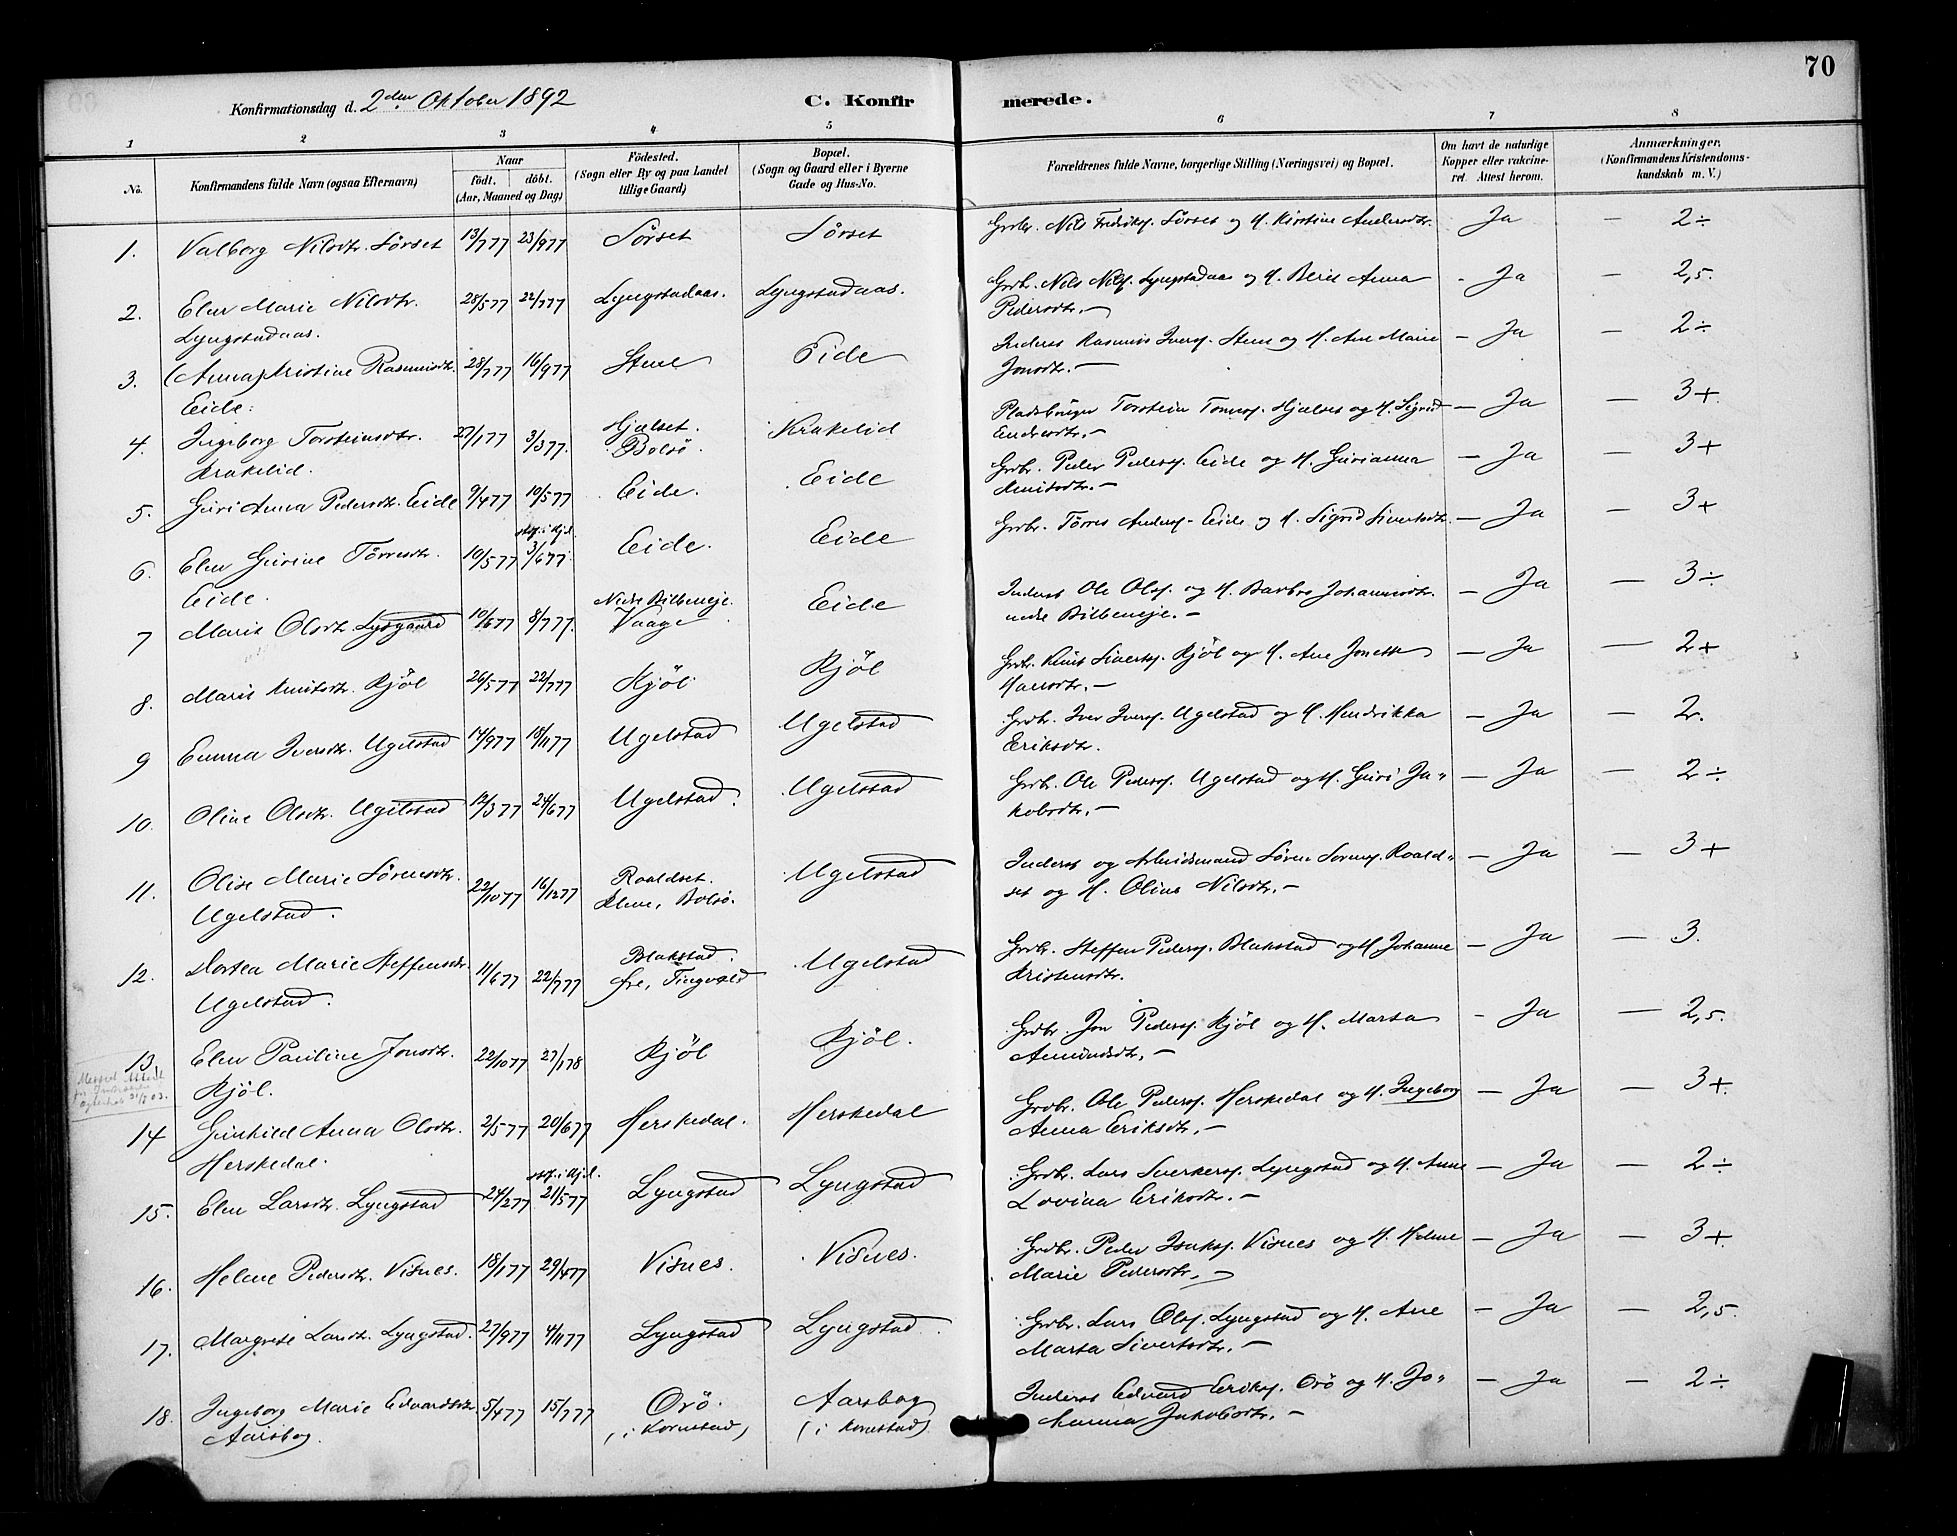 70
Konfirmationsdag d. 2den Oktober 1892 C. Konfirmerede.
1 2 3 4 5 6 7 8
No. Konfirmandens fulde Navn (ogsaa Efternavn) Naar födt, döbt. (Aar, Maaned og Dag) Födested. (Sogn eller By og paa Landet tillige Gaard) Bopæl. (Sogn og Gaard eller i Byerne Gade og Hus-No. Forældrenes fulde Navne, borgerlige Stilling (Næringsvei) og Bopæl. Om havt de naturlige Kopper eller vakcineret. Attest herom. Anmærkninger, (Konfirmandens Kristendomskundskab m. V.)
1. Valborg Nilsdtr. Sörset 13/7 77 23/9 77 Sörset Sörset Grdbr. Nils Fredriks. Sörset og H. Kirstine Andersdtr. Ja — 2÷
2. Elen Marie Nilsdtr. 28/5 77 22/7 77 Lyngstadaas. Lyngstadaas. Grdbr. Nils Nils. Lyngstadaas og H. Berit Anna - Ja — 2,5.
Lyngstadaas. Pedersdtr. —
3. (Anna) Kristine Rasmusdtr. 28/7 77 16/9 77 Stene Eide Inderst Rasmus Ivers. Stene og H. Ane Marie — Ja — 2÷
Eide. Jonsdtr. —
4. Ingeborg Torsteinsdtr. 27/1 77 3/3 77. Hjelset. Krakelid Torstein Hjelset og H. Sigrid — Ja — 3+
Krakelid. Bolsö. Endresdtr. —
5. Guri Anna Pedersdtr. Eide 9/4 77 10/5 77 Eide. Eide Grdbr. Peder Peders. Eide og H. Gurianna — Ja — 3+
Knutsdtr. —
6. Elen Gurine Törresdtr. 10/5 77 3/6 77. Eide. Eide Grdbr. Törres Anders. Eide og H. Sigrid Sivertsdtr. — Ja — 3+
Eide.
7 Marit Olsdtr. Lysgaard 10/6 77 8/7 77. Nedre Bilbeneje. Vaage Eide Inderst Ole Ols. og H. Barbro Johannesdtr. — Ja — 3÷
nedre Bilbeneje. —
8. Marit Knutsdtr. Kjöl 26/5 77 22/7 77 Kjöl Kjöl Grdbr. Knut Siverts. Kjöl og H. Ane Jonetta — Ja — 2+
Hansdtr. —
9 Emma Iversdtr. Ugelstad 14/9 77 18/11 77 Ugelstad Ugelstad Grdbr. Iver Ivers. Ugelstad og H. Hendrikka — Ja — 2.
Eriksdtr.
10. Oline Olsdtr. Ugelstad 12/3 77 24/6 77 Ugelstad. Ugelstad Grdbr. Ole Peders. Ugelstad og H. Guri Ja- — Ja — 2÷
kobsdtr. —
11. Olise Marie Sörensdtr. 22/10 77 16/12 77 Roaldset. Ugelstad Inderst og Arbeidsmand Sören Sörens. Roald- — Ja — 3+
Ugelstad. Kleve, Bolsö. set og H. Oline Nilsdtr. —
12. Dortea Marie Steffensdtr. 11/6 77 22/7 77 Blakstad. Ugelstad Grdbr. Steffen Peders. Blakstad og H. Johanne — Ja — 3.
Ugelstad. Öre, Tingvold Kristensdtr.
13. Elen Pauline Jonsdtr. 22/10 77 27/1 78 Kjöl Kjöl. Grdbr. Jon Peders. Kjöl og H. Marta - Ja — 2,5.
Kjöl. Amundsdtr. —
14 Gunhild Anna Olsdtr. 2/5 77 20/6 77 Herskedal. Herskedal Grdbr. Ole Peders. Herskedal og H. Ingeborg — Ja — 3+
Herskedal. Anna Eriksdtr. —
15. Elen Larsdtr. Lyngstad 24/2 77 21/5 77 Lyngstad Lyngstad Grdbr. Lars Sverkers. Lyngstad og H. Anne — Ja — 2÷
Lovina Eriksdtr. —
16. Helene Pedersdtr. Visnes. 18/1 77 29/4 77 Visnes. Visnes. Grdbr. Peder Isaks. Visnes og H. Helene — Ja — 3+
Marie Pedersdtr. —
17. Margrete Larsdtr. Lyngstad. 27/9 77 4/11 77 Lyngstad Lyngstad. Grdbr. Lars Ols. Lyngstad og H. Ane — Ja — 2,5
Marta Sivertsdtr. —
18. Ingeborg Marie Edvardsdtr. 5/4 77 15/7 77 Orö. Aarsbog Inderst Edvard Eriks. Orö og H. Jo- — Ja — 2÷
Aarsbog. (i Kornstad) (i Kornstad) hanna Jakobsdtr. —